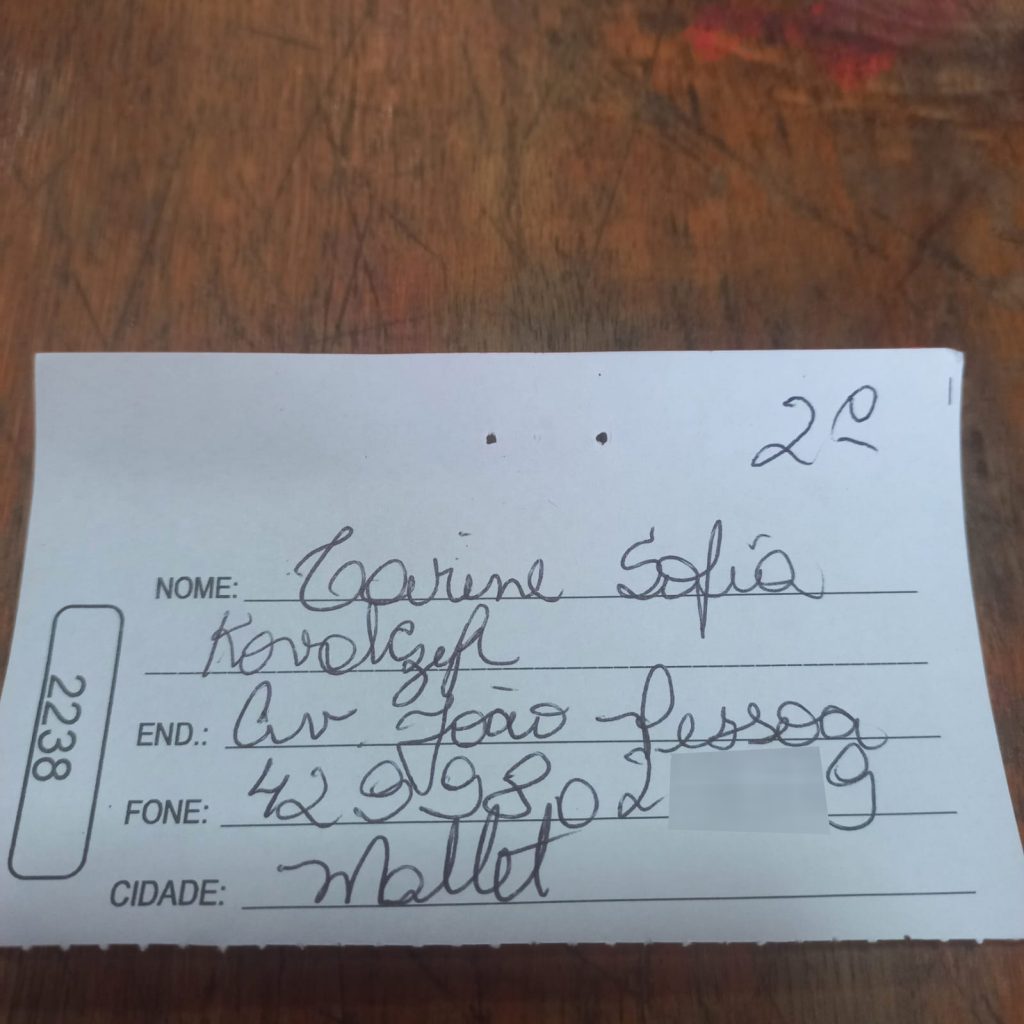 2º
NOME: Tarine Sofia
Kovalczyk
END.: Av João Pessoa
FONE: 42 99802 9
CIDADE: Mallet
2238